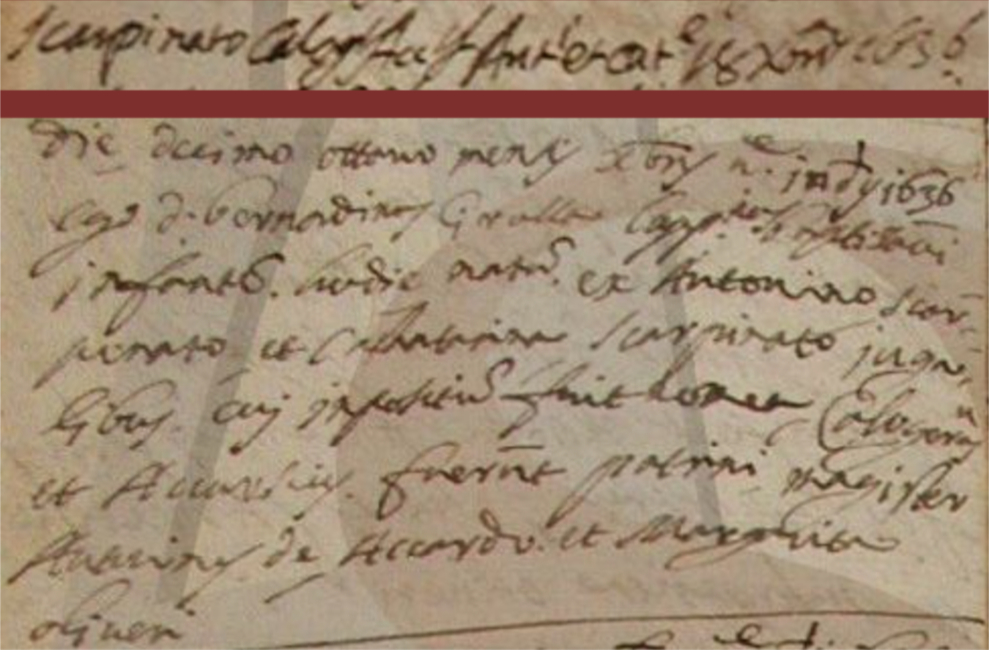 Scarpinato Calog. et Acc. f. Ant.i et Cat.e 18 Xbris 1636
Die decimo ottavo mensis Xbris n.e ind. 1636
Ego D. Bernardinus Capp.s baptizavi
infante. hodie natu. ex Antonino Scar-
penato et Catharina Scarpinato juga-
libus cuj impositu fuit nomen Calogerus
et Accursius. fuerut patrini magister
Antoninus de Accardo. et Margarita
oliveri